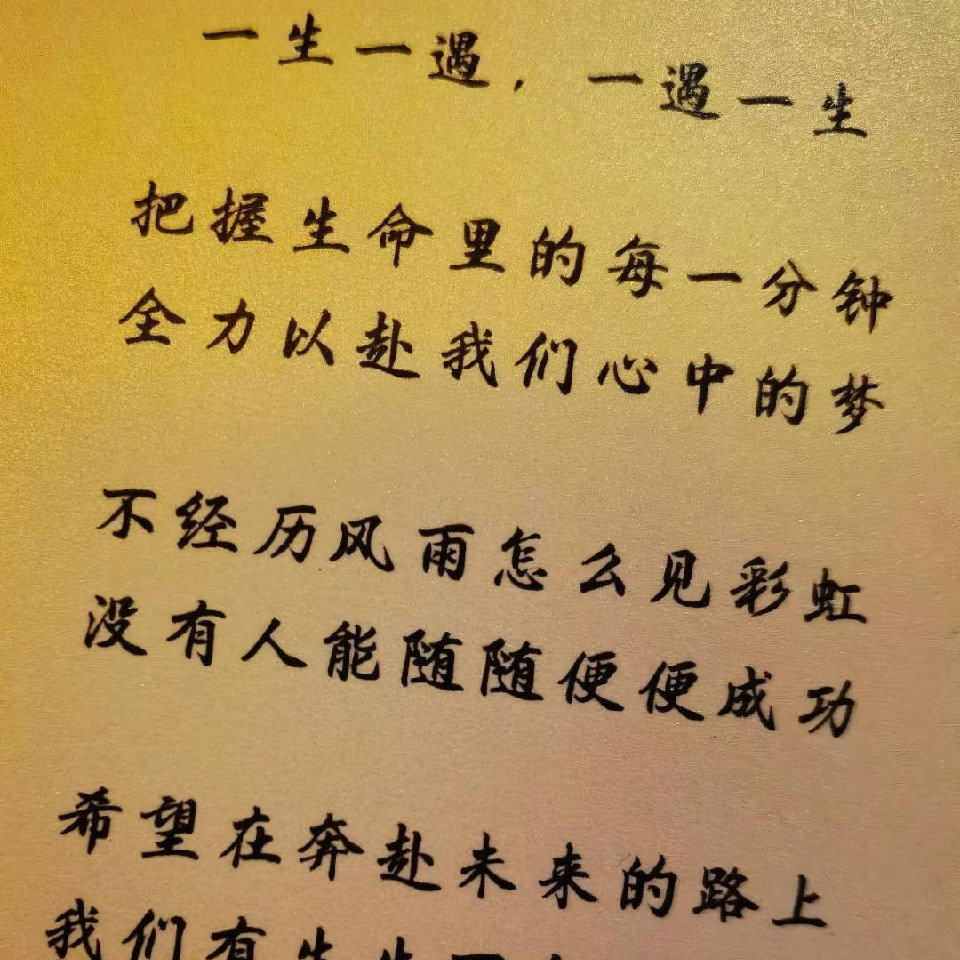 一生一遇，一遇一生
把握生命里的每一分钟
全力以赴我们心中的梦
不经历风雨怎么见彩虹
没有人能随随便便成功
希望在奔赴未来的路上
我们有生生不